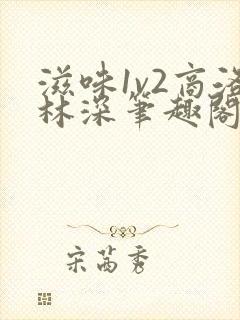 滋味1v2高洛
林深筆趣閣
宋茜秀